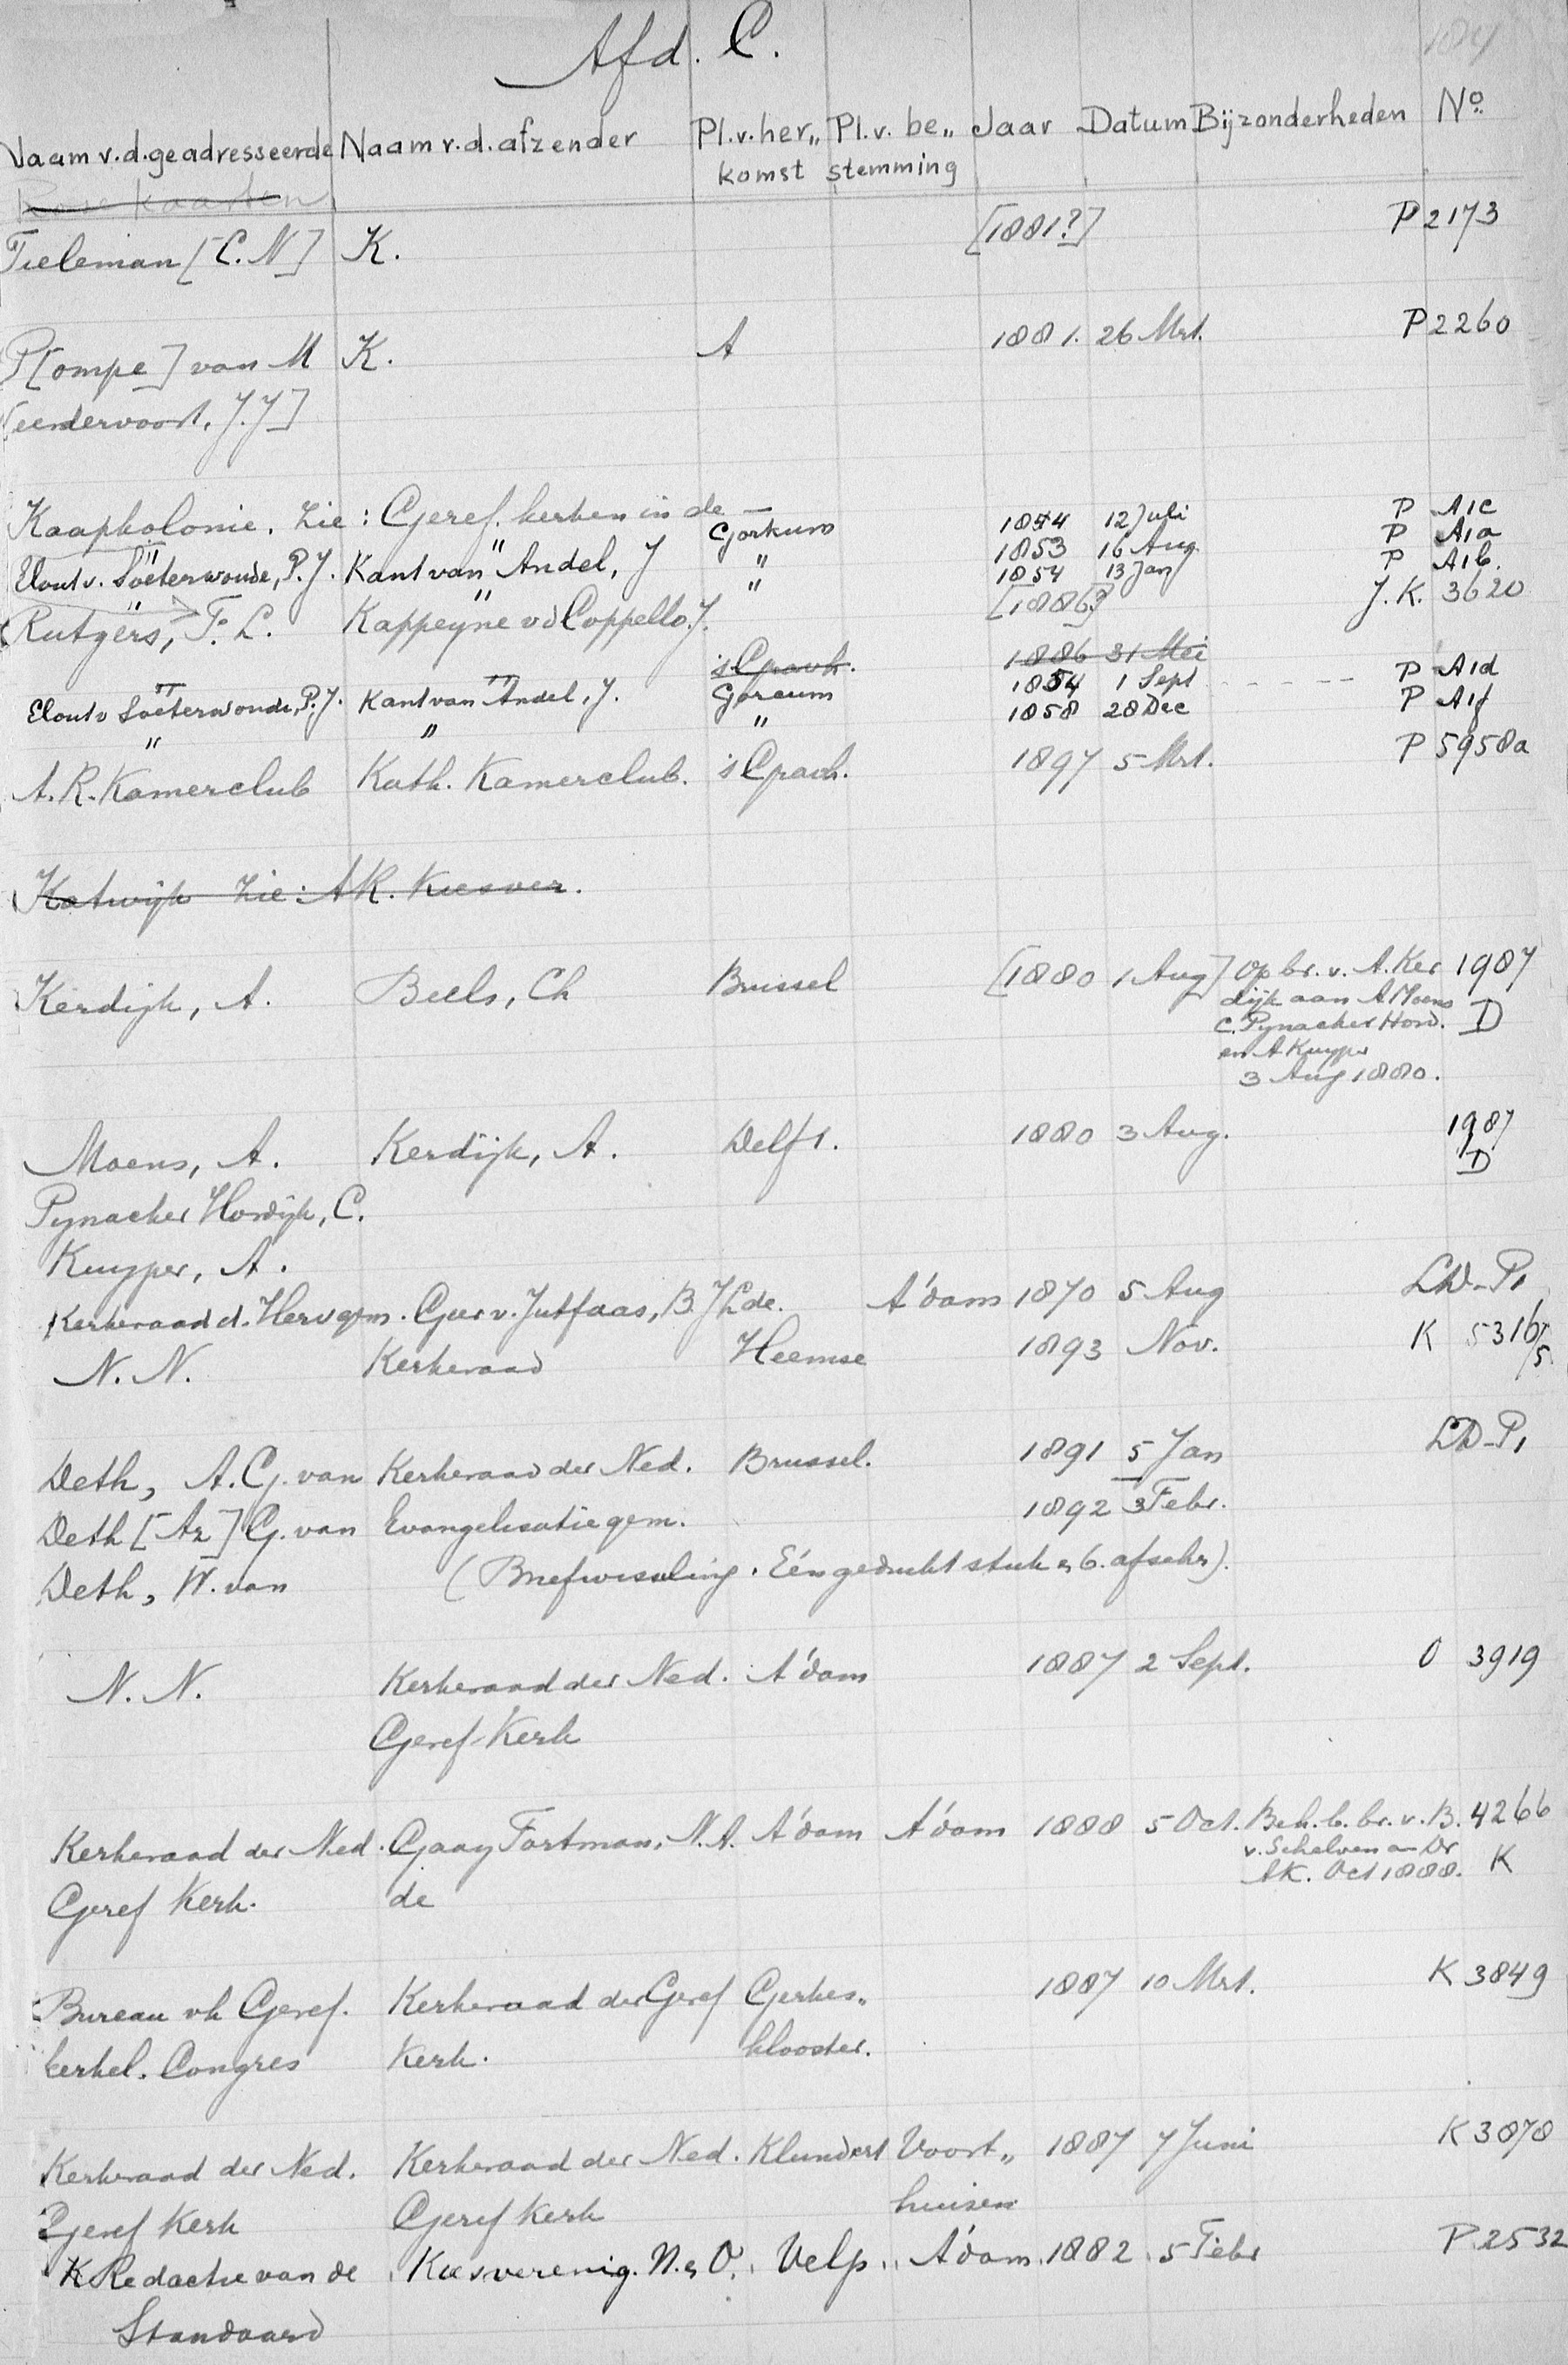 184
Afd. C.
Naam v.d. geadresseerde Naam v.d. afzender Pl.v.her„ Pl.v. be„ Jaar Datum Bijzonderheden No
komst stemming
kaarten
Tieleman [C.N] K. [1881?] P 2173
P[ompe] van M K. A 1881. 26 Mrt. P 2260
[eerdervoort, J.J]
Kaapkolonie. Zie: Geref. kerken in de —
" " Gorkum 1854 12 Juli P A1c
Elout v. Soeterwoude, P.J. Kant van Andel, J " 1853 16 Aug. P A1a
" " " 1854 13 Jan P A1b.
Rutgers, F.L. Kappeyne vd Coppello. J. [1886?] J.K. 3620
's Gravh. 1886 31 Mei
" " Gorcum 1854 1 Sept - - - - - P A1d
Elout v Soeterwoude, P.J. Kant van Andel, J. " 1858 28 Dec P A1f
" "
A.R. Kamerclub Kath. Kamerclub. 's Gravh. 1897 5 Mrt. P 5958a
Katwijk Zie: AR. Kiesver.
Kerdijk, A. Beels, Ch Brussel [1880 1 Aug] Op br. v. A. Ker 1987
dijk aan A Moens
C. Pynacker Hord. D
en A Kuyper
3 Aug 1880.
Moens, A. Kerdijk, A. Delft. 1880 3 Aug. 1987
D
Pynacker Hordijk, C.
Kuyper, A.
Kerkeraad d. Herv gem. Geer v. Jutfaas, B. J L de. A'dam 1870 5 Aug LD-P1
N. N. Kerkeraad Heemse 1893 Nov. K 5316/5
Deth, A.G. van Kerkeraad der Ned. Brussel. 1891 5 Jan LD-P1
Deth [Az] G. van Evangelisatie gem. 1892 3 Febr.
Deth, W. van (Briefwisseling. Eén gedrukt stuk en 6. afschr).
N. N. Kerkeraad der Ned. A'dam 1887 2 Sept. O 3919
Geref Kerk
Kerkeraad der Ned. Gaay Fortman, N.A. A'dam A'dam 1888 5 Oct. Beh. b. br. v. B. 4266
v. Schelven an Dr
Geref Kerk. de AK. Oct 1888. K
Bureau vh Geref. Kerkeraad der Geref Gerkes„ 1887 10 Mrt. K 3849
kerkel. Congres Kerk. klooster.
Kerkeraad der Ned. Kerkeraad der Ned. Klundert Voort„ 1887 7 Juni K 3878
Geref Kerk Geref Kerk huisen
K Redactie van de Kiesverenig. N. en O. Velp. A'dam. 1882 5 Febr P. 2532
Standaard